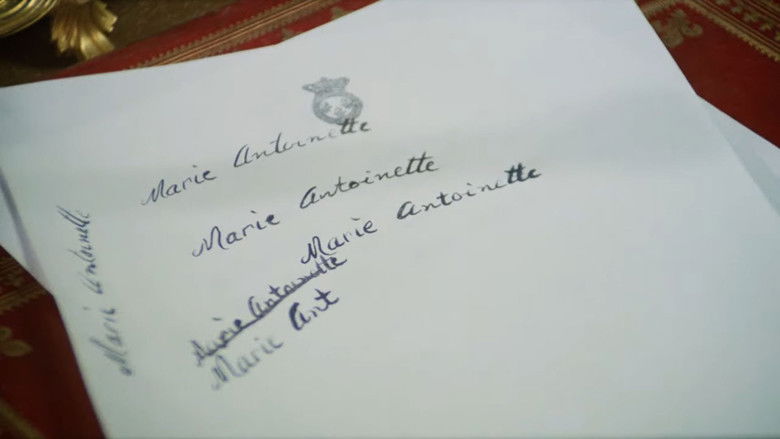 Marie Antoinette
Marie Antoinette
Marie Antoinette
Marie Antoinette
Marie Ant
Marie Antoinette